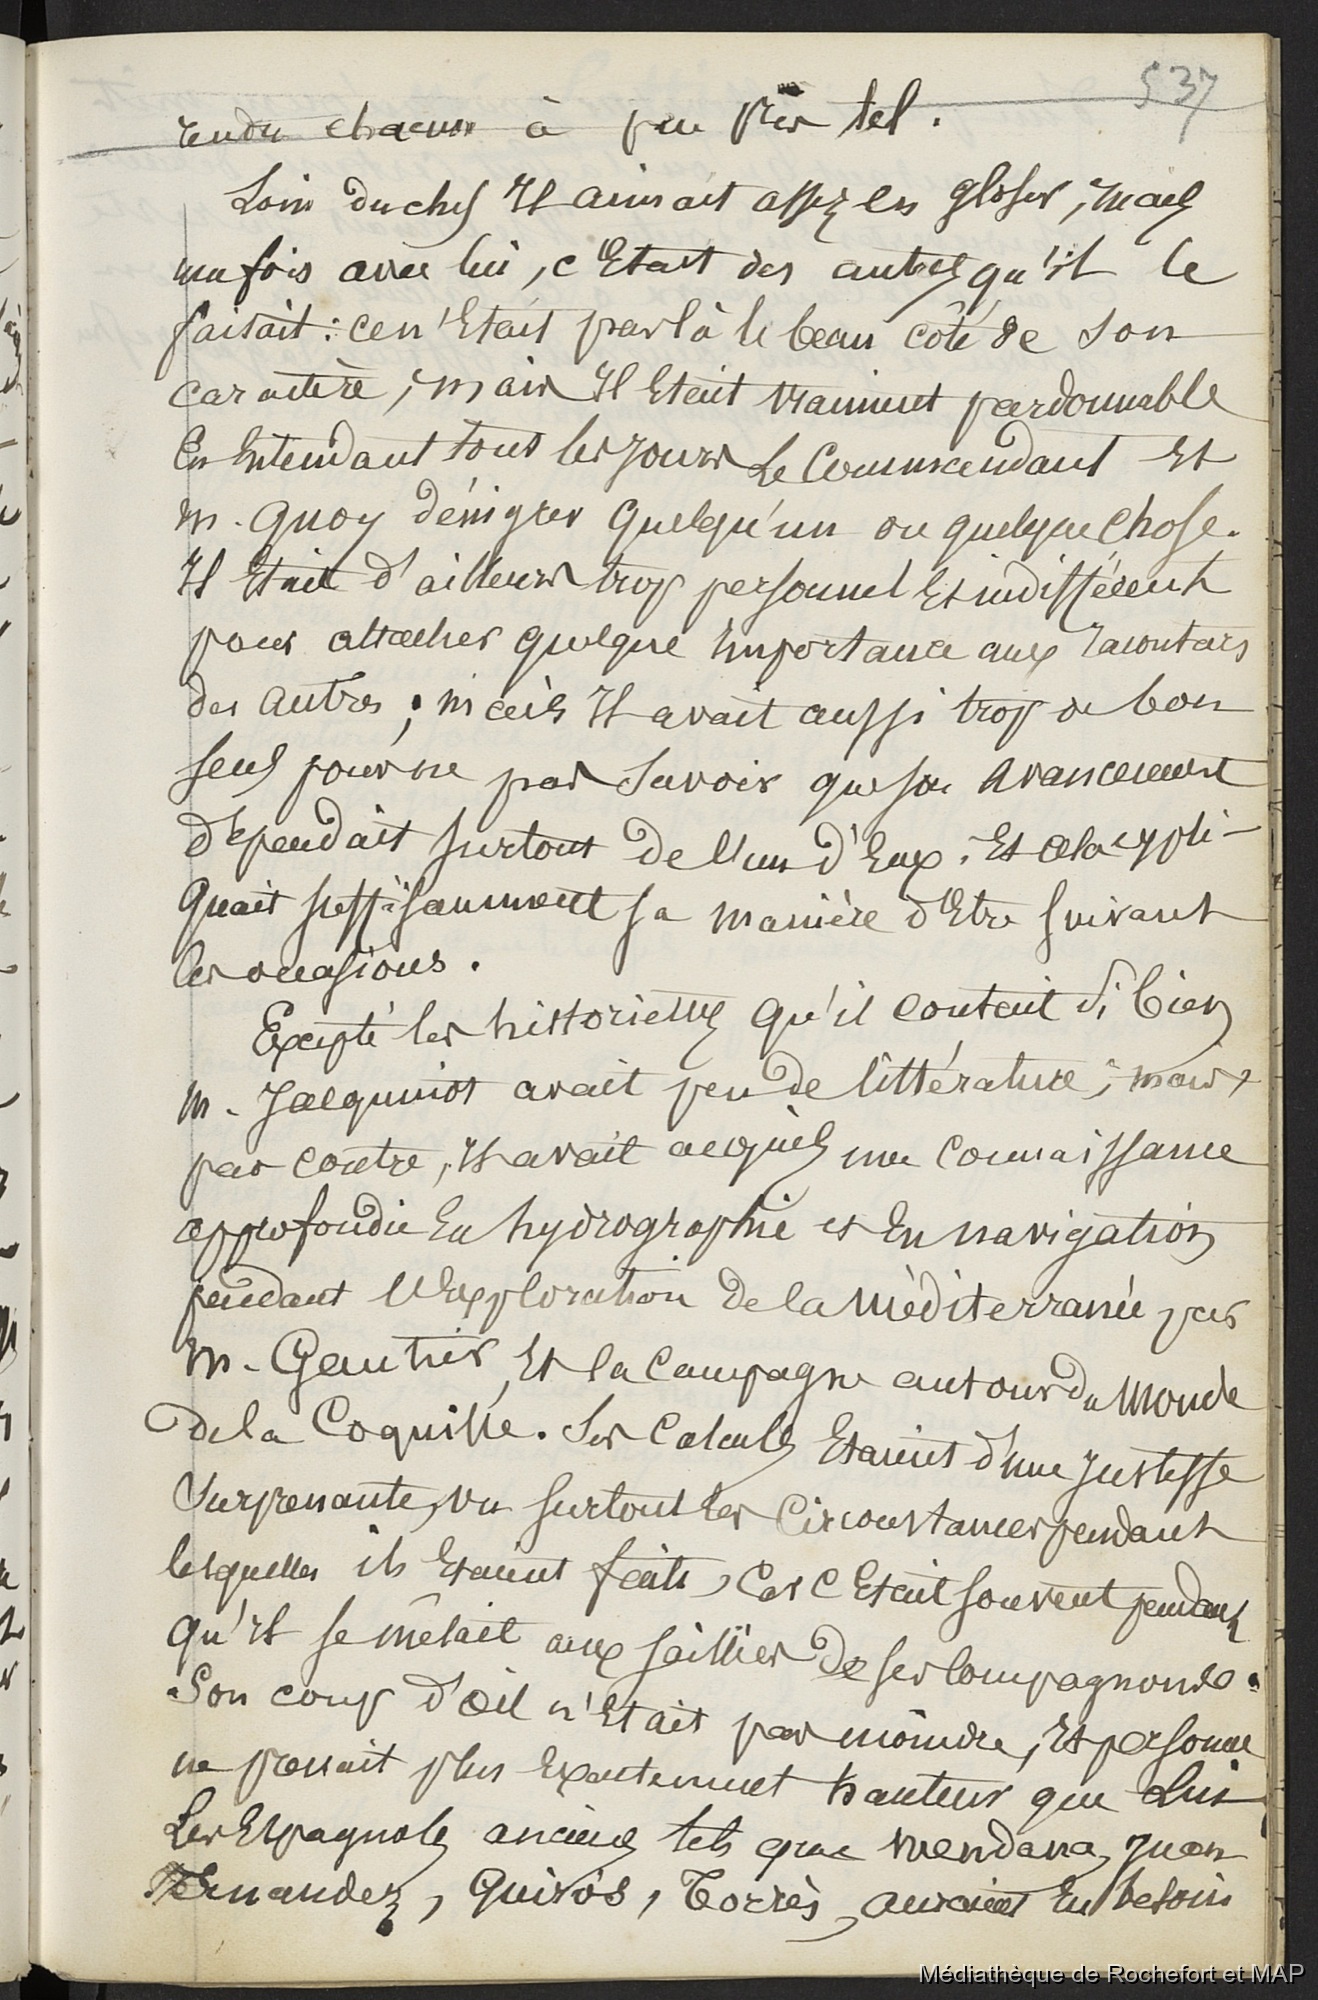 537
rendu chacun à peu près tel.
Loin du chef Il aimait assez en gloser, mais
une fois avec lui, c'Etait des autres qu'il le
faisait : ce n'Etait pas là le beau côté de son
caractère, mais Il Etait vraiment pardonnable
En Entendant tous les jours Le Commandant Et
m. Quoy dénigrer quelqu'un ou quelque chose.
Il Etait d'ailleurs trop personnel Et indifférent
pour attacher quelque Importance aux racontars
des autres ; mais Il avait aussi trop de bon
sens pour ne pas savoir que son avancement
dépendait surtout de l'un d'Eux. Et cela expli-
quait suffisamment sa manière d'Etre suivant
les occasions.
Excepté les historiettes qu'il contait si bien
m. Jacquinot avait peu de littérature ; mais,
par contre, Il avait acquis une connaissance
approfondie En hydrographie et En navigation
pendant l'Exploration de la Méditerranée par
m. Gautier, Et la Campagne autour du Monde
de la Coquille. Ses Calculs Etaient d'une justesse
surprenante, vu surtout les Circonstances pendant
lesquelles ils Etaient faits, Car C'Etait souvent pendant
qu'Il se mêlait aux saillies de ses Compagnons.
Son coup d'œil n'Etait pas moindre, Et personne
ne prenait plus Exactement hauteur que Lui
Les Espagnols anciens tels que Mendana, Juan
Fernandez, Quiros, Torrès, auraient Eu besoin
Médiathèque de Rochefort et MAP